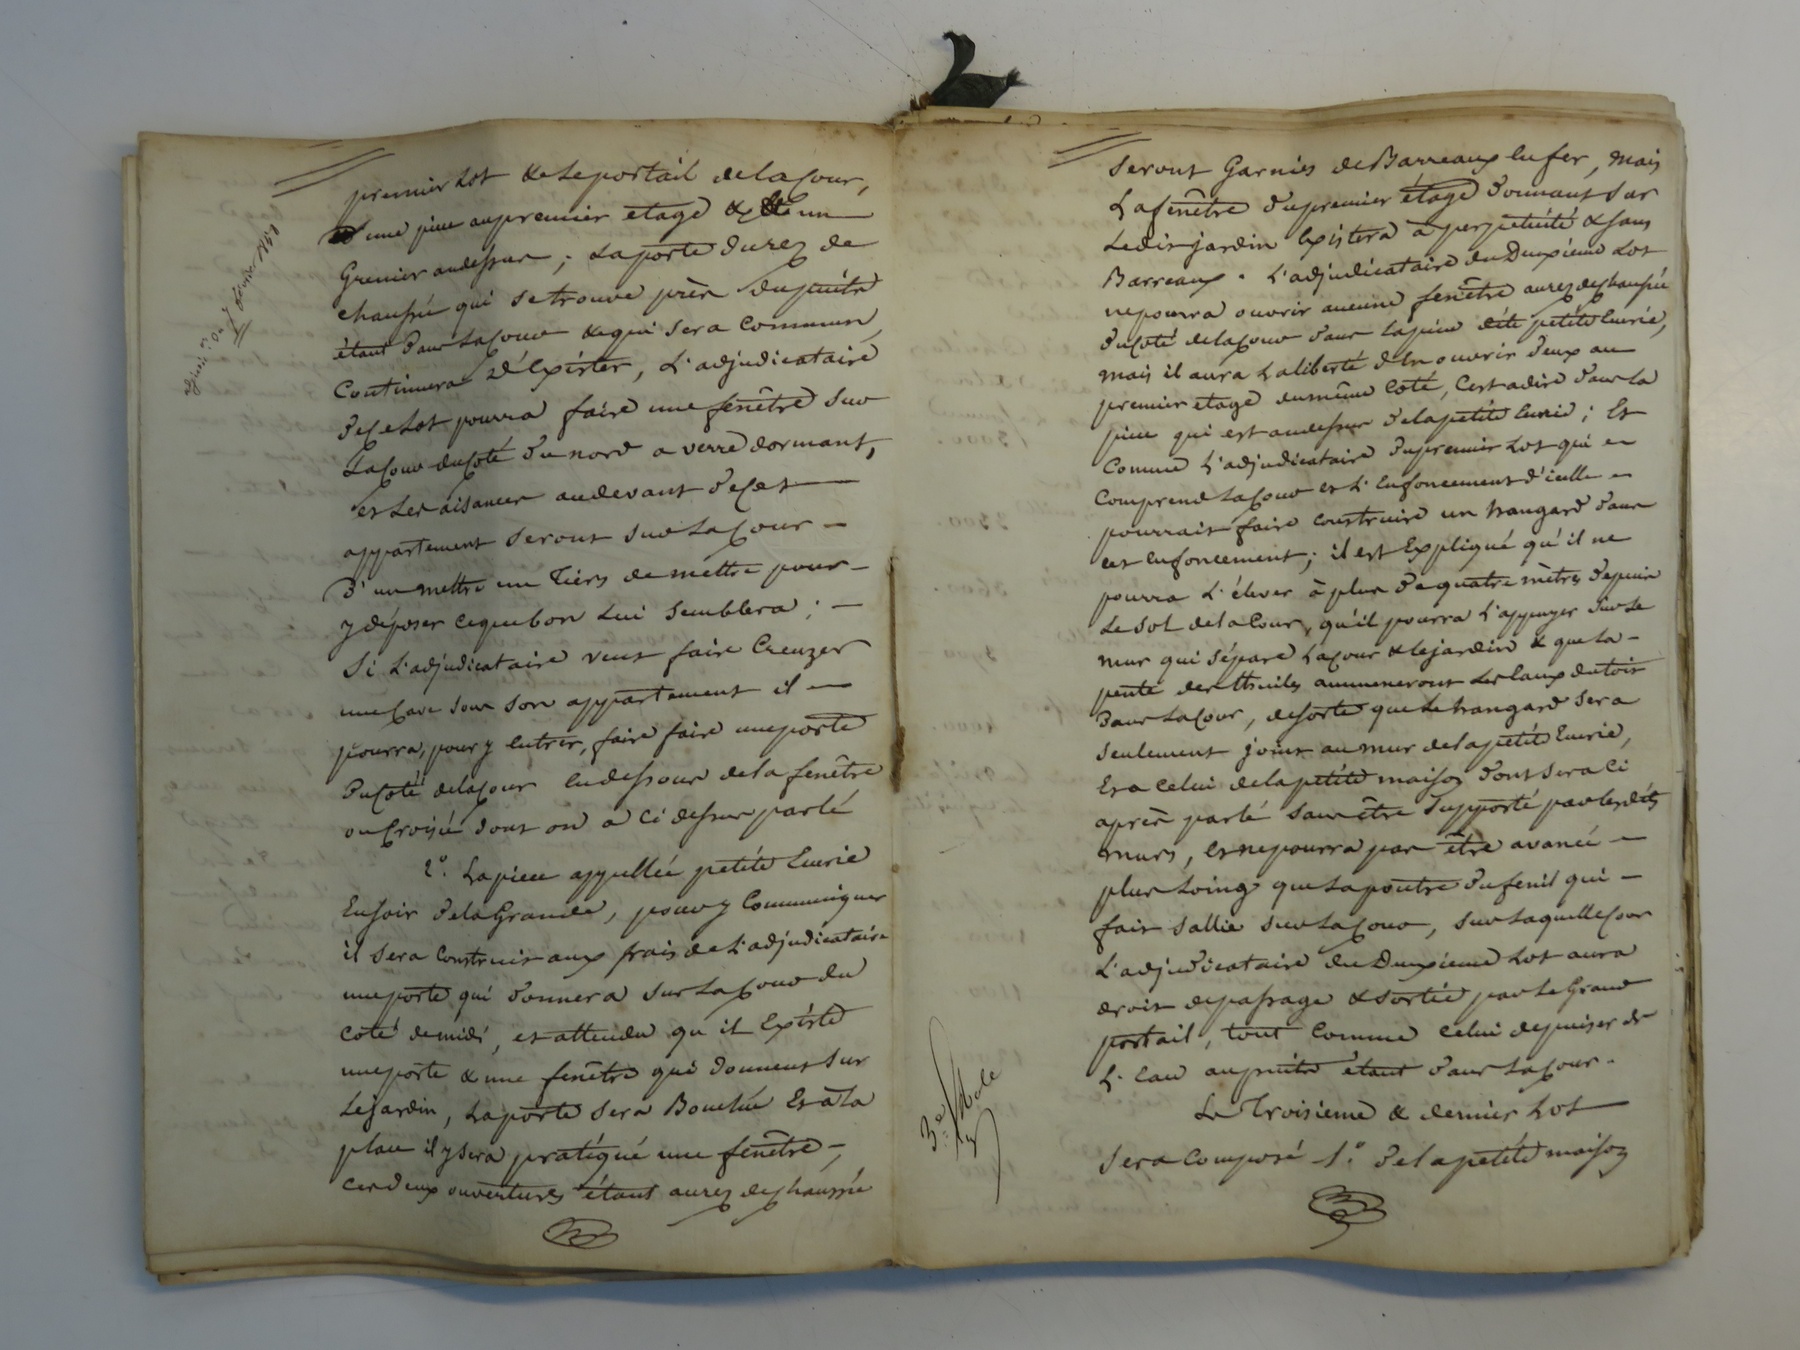 premier Lot & Le portail de la Cour,
d'une piece au premier étage & d'un
Grenier audessus ; La porte du rez de
chaussée qui se trouve près du puits
étant dans La Cour & qui sera Commun,
Continuera d'Éxister, L'adjudicataire
de Ce Lot pourra faire une fenêtre sur
La Cour du Coté du nord a verre dormant,
et Les aisances audevant de Cet
appartement seront sur La Cour
d'un mettre un Tiers de mettre pour
y déposer ce que bon Lui Semblera ;
Si L'adjudicataire veut faire Creuzer
une Cave sous son appartement il
pourra, pour y Entrer, faire faire une porte
du Coté de la Cour En dessous de la fenêtre
ou Croisée dont on a Ci dessus parlé
2.° La piece appellée petite Écurie
En soir de la Grande, pour y Communiquer
il sera Construit aux frais de L'adjudicataire
une porte qui donnera sur La Cour du
Coté de midi, et attendu qu'il Éxiste
une porte & une fenêtre qui donnent sur
Le jardin, La porte sera Bouchée Et à La
place il y sera pratiqué une fenêtre,
Ces deux ouvertures étant au rez de chaussée
7 février 1838
seront Garnies de Barreaux En fer, mais
La fenêtre du premier étage donnant sur
Ledit jardin Éxistera à perpétuité & sans
Barreaux. L'adjudicataire du Deuxieme Lot
ne pourra ouvrir aucune fenêtre au rez de chaussée
du Coté de la Cour dans La piece dite petite Écurie,
mais il aura La liberté d'En ouvrir deux au
premier étage du même Coté, C'est à dire dans La
piece qui est audessus de la petite Écurie ; Et
Comme L'adjudicataire du premier Lot qui
Comprend La Cour et L'Enfoncement d'icelle
pourrait faire Construire un hangard dans
cet Enfoncement ; il est Expliqué qu'il ne
pourra L'élever à plus de quatre mètres depuis
Le sol de la Cour, qu'il pourra L'appuyer sur Le
mur qui sépare La Cour & Le jardin & que La
pente des thuiles ammeneront Les Eaux du toit
dans La Cour, de sorte que Le hangard sera
seulement joint au mur de la petite Écurie,
Et a Celui de la petite maison dont sera Ci
après parlé sans être supporté par Les dits
murs, et ne pourra pas être avancé
plus Loing que La poutre du fenil qui
fait sallie sur La Cour, sur Laquelle Cour
L'adjudicataire du Deuxieme Lot aura
droit de passage & sortie par Le Grand
portail, tout Comme Celui de puiser de
L'Eau au puits étant dans La Cour.
Le Troisieme & dernier Lot
Sera Composé 1.° de la petite maison
3e